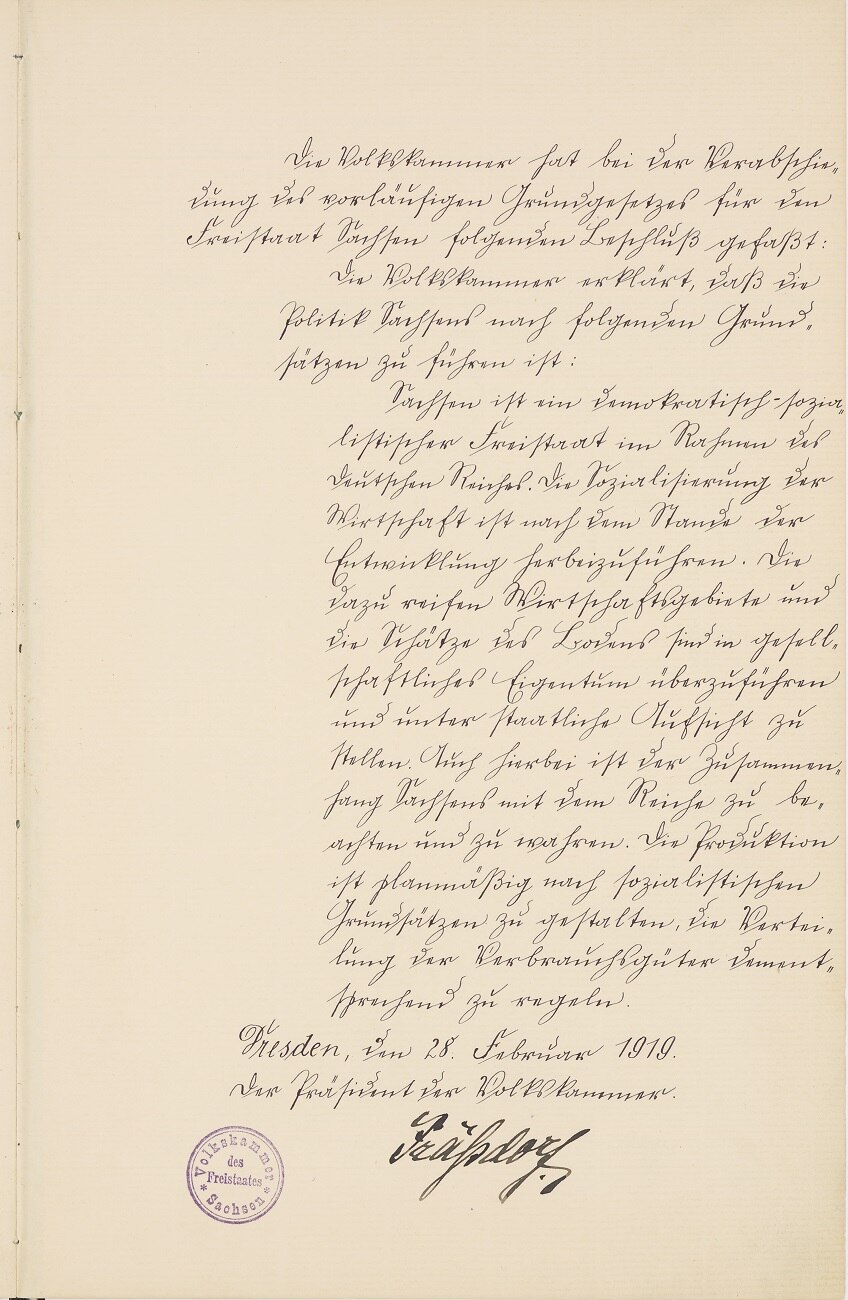 Die Volkskammer hat bei der Verabschie-
dung des vorläufigen Grundgesetzes für den
Freistaat Sachsen folgenden Beschluß gefaßt:
Die Volkskammer erklärt, daß die
Politik Sachsens nach folgenden Grund-
sätzen zu führen ist:
Sachsen ist ein demokratisch-sozia-
listischer Freistaat im Rahmen des
Deutschen Reiches. Die Sozialisierung der
Wirtschaft ist nach dem Stande der
Entwicklung herbeizuführen. Die
dazu reifen Wirtschaftsgebiete und
die Schätze des Bodens sind in gesell-
schaftliches Eigentum überzuführen
und unter staatliche Aufsicht zu
stellen. Auch hierbei ist der Zusammen-
hang Sachsens mit dem Reiche zu be-
achten und zu wahren. Die Produktion
ist planmäßig nach sozialistischen
Grundsätzen zu gestalten, die Vertei-
lung der Verbrauchsgüter dement-
sprechend zu regeln.
Dresden, den 28. Februar 1919.
Der Präsident der Volkskammer.
Fräßdorf
Volkskammer
des
Freistaates
* Sachsen *